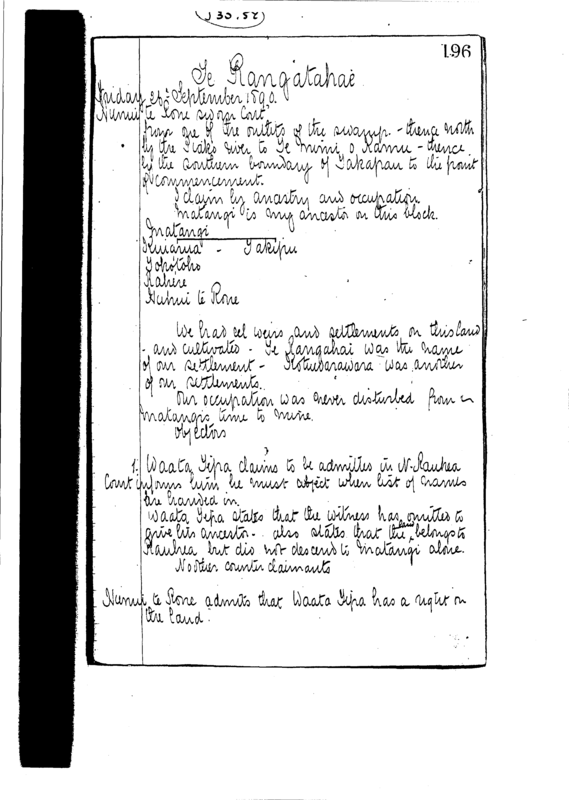 J 30.52
196
Te Rangatahae
Friday 26th September 1890.
Nunui te Rone sworn Cont.
from one of the outlets of the swamp - thence north
by the river to Te Mimi o - thence
by the southern boundary of Takapau to the point
of commencement.
I claim by ancestry and occupation
Matangi is my ancestor on this block.
Matangi
- Takipu
Tokotoko
Rahere
Nunui te Rone
We had eel weirs and settlements on this land
- and cultivated - Te Rangahai was the name
of our settlement - was another
of our settlements.
Our occupation was never disturbed from
Matangi's time to mine.
Objectors
1. Waata Tipa claims to be admitted in N. Raukea
Court informs him he must object when list of names
are handed in
Waata Tipa states that the witness has omitted to
give his ancestor - also states that the land belongs to
Raukea but did not descend to Matangi alone.
No other counter claimants
Nunui te Rone admits that Waata Tipa has a right on
the land.